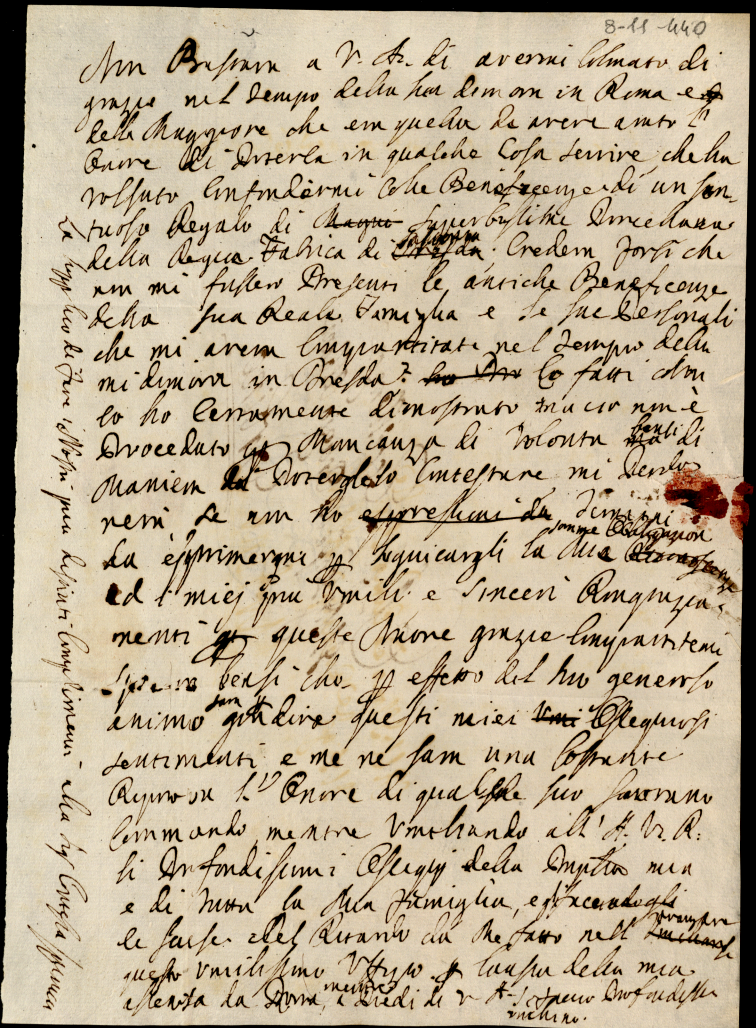 8-11-440
Non Bastava a V. A. di avermi Colmato di
grazie nel tempo della sua dimora in Roma e
della Maggiore che era quella di avere avuto l'
Onore di Poterla in qualche Cosa servire che ha
volsuto Confondermi colle Beneficenze di un son
tuoso Regalo di Superbissime Porcellane
della Regia Fabrica di Sassonia. Credeva forsi che
non mi fussero Presenti le antiche Beneficenze
della sua Reale Famiglia e le sue Personali
che mi aveva Compartitate nel tempo della
mi dimora in Dresda?
lo ho Ceramente dimostrato ma cio non è
Proceduto Mancanza di Volonta bensi di
Maniera Poterglielo Contestare mi Perdo
nera se non ho termini
da esprimergli la mia somma Obligazion
ed i miei più Umili e Sinceri Ringrazia
menti queste Nuove grazie Compartitemi
bensi che effetto del suo generoso
animo sara questi miei Ossequiosi
sentimenti e me ne fara una Costante
Riprova l' Onore di qualche suo sovrano
Commando, mentre Umiliando all' A. V. R.
li Profondissimi Ossequij della mia
e di tutta la Mia Famiglia,
le scuse del Ritardo da Me fatto nell'
questo Umilissimo causa della mia
da Roma, mentre a Piedi di V. A. Profondissi
inchino.
La supplico di fare i Nostri piu distinti Complimenti alla Sig.